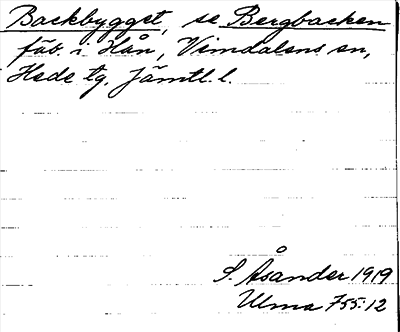 Backbygget, se Bergbacken
fäb. i Hån, Vemdalens sn,
Hede tg. Jämtl. l.
S. Åsander 1919
Ulma 755:12